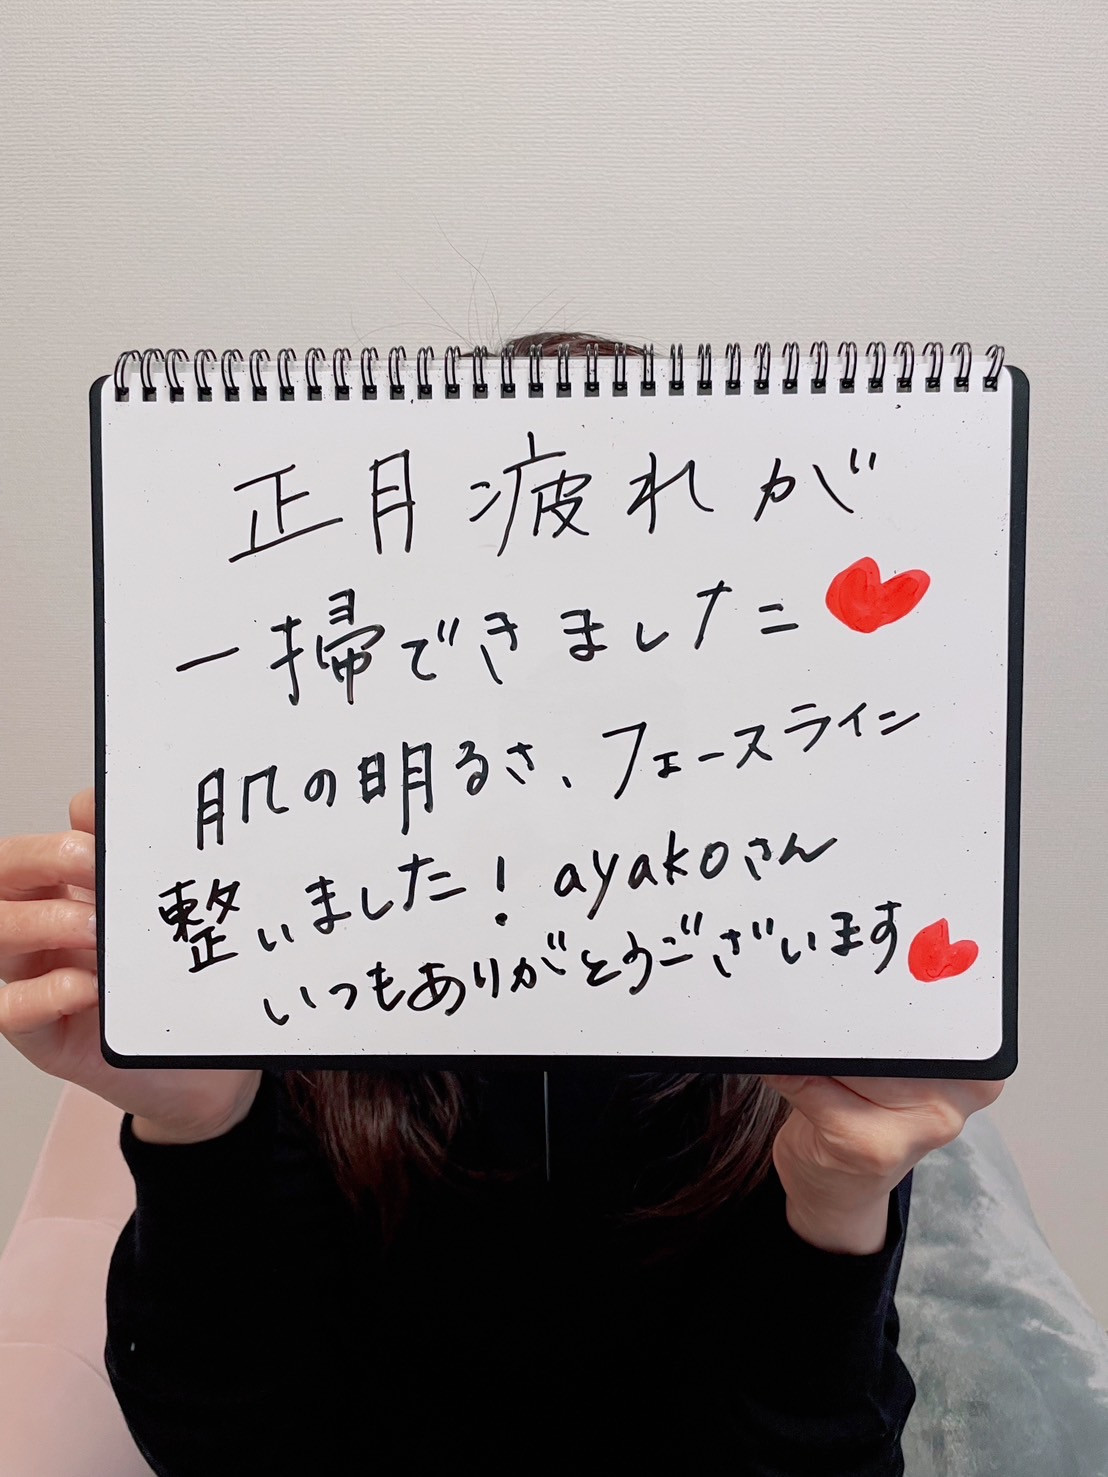 正月疲れが
一掃できました
肌の明るさ、フェースライン
整いました！ayakoさん
いつもありがとうございます